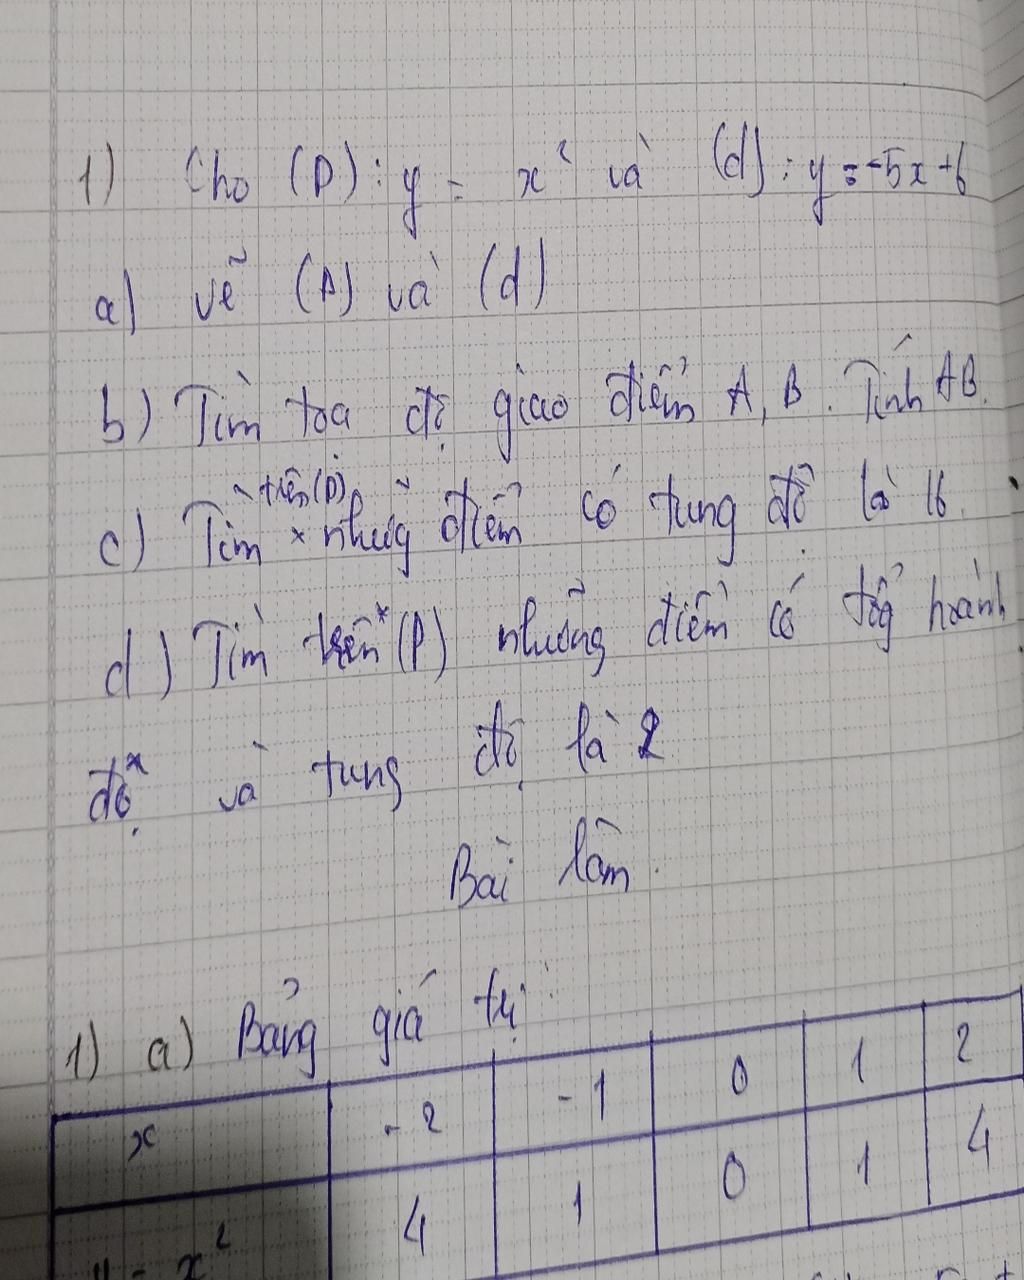 1) Cho (P): y = x² và (d): y = -5x + 6
a) vẽ (P) và (d)
b) Tìm tọa độ giao điểm A, B. Tính AB.
trên (P)
c) Tìm × những điểm có tung độ là 16.
d) Tìm trên (P) những điểm có tổng hoành
độ và tung độ là 2
Bài làm.
1) a) Bảng giá trị:
x -2 -1 0 1 2
y = x² 4 1 0 1 4